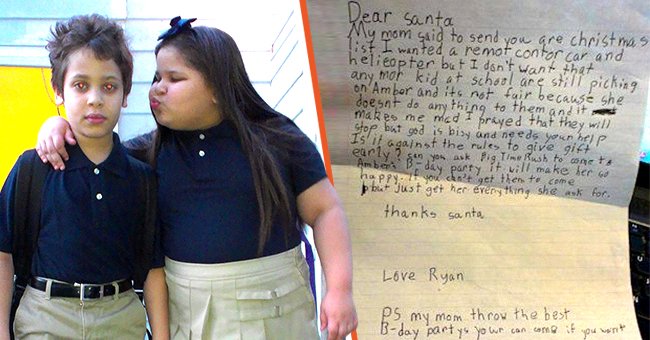 Dear santa
My mom said to send you are christmas
list I wanted a remot contor car and
helicopter but I don't want that
any mor kid at school are still picking
on Amber and its not fair because she
doesnt do anything to them and it
makes me mad I prayed that they will
stop but god is bisy and needs your help
Is it against the rules to give gift
early? Can you ask Big Time Rush to come to
Amber's B-day party it will make her so
happy. If you can't get them to come
but just get her everything she ask for.
thanks santa
Love Ryan
PS my mom throw the best
B-day partys your can come if you want